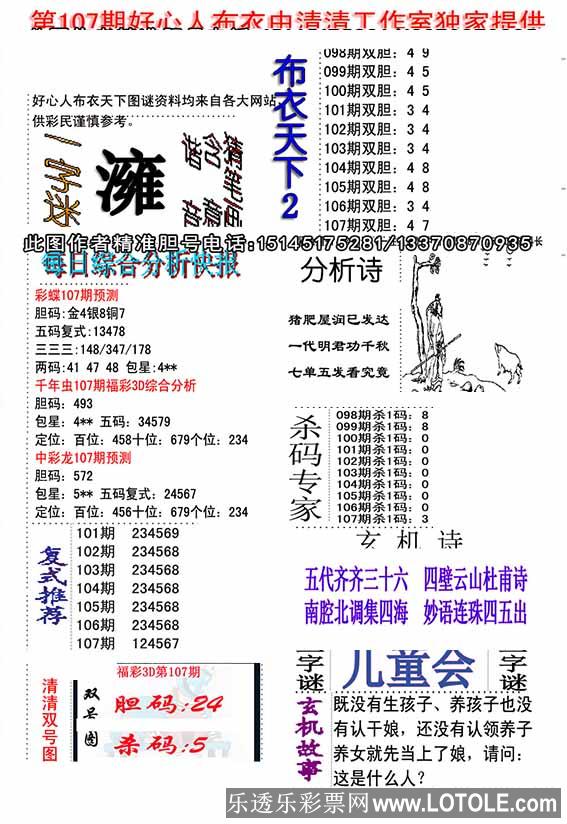 第107期好心人布衣由清清工作室独家提供
好心人布衣天下图谜资料均来自各大网站,
供彩民谨慎参考。
一字迷
瀕
布衣天下2
098期双胆: 4 9
099期双胆: 4 5
100期双胆: 4 5
101期双胆: 3 4
102期双胆: 3 4
103期双胆: 3 4
104期双胆: 4 8
105期双胆: 4 8
106期双胆: 3 4
107期双胆: 4 7
此图作者精准胆号电话:15145175281/13370870935*
每日综合分析快报
彩蝶107期预测
胆码:金4银8铜7
五码复式:13478
三三三:148/347/178
两码: 41 47 48 包星:4**
千年虫107期福彩3D综合分析
胆码: 493
包星: 4** 五码: 34579
定位: 百位: 458十位: 679个位: 234
中彩龙107期预测
胆码: 572
包星: 5** 五码复式: 24567
定位: 百位: 456十位: 679个位: 234
分析诗
猪肥屋润已发达
一代明君功千秋
七单五发看究竟
杀码专家
098期杀1码: 8
099期杀1码: 8
100期杀1码: 0
101期杀1码: 0
102期杀1码: 0
103期杀1码: 0
104期杀1码: 0
105期杀1码: 0
106期杀1码: 0
107期杀1码: 3
复式推荐
101期 234569
102期 234568
103期 234568
104期 234568
105期 234568
106期 234568
107期 124567
玄机诗
五代齐齐三十六 四壁云山杜甫诗
南腔北调集四海 妙语连珠四五出
清清双号图
双号图
福彩3D第107期
胆码:24
杀码:5
字谜
儿童会
字谜
玄机故事
既没有生孩子、养孩子也没
有认干娘，还没有认领养子
养女就先当上了娘，请问：
这是什么人？
乐透乐彩票网 www.LOTOLE.com